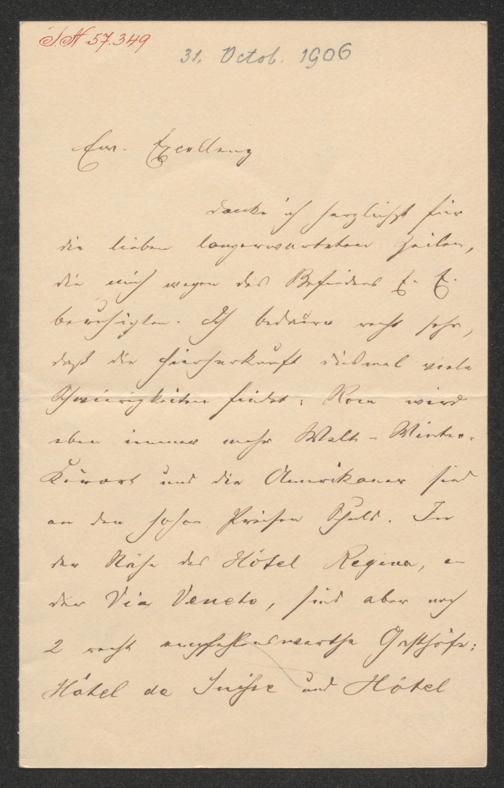 I.N 57.349
31. Octob. 1906
Eur. Excellenz
danke ich herzlichst für
die lieben langerwarteten Zeilen,
die mich wegen des Befindens E. E.
beruhigten. Ich bedaure recht sehr,
daß die Hierherkunft diesmal viele
Schwierigkeiten findet; Rom wird
eben immer mehr Welt-Winter-
Kurort und die Amerikaner sind
an den hohen Preisen Schuld. In
der Nähe des Hôtel Regina, in
der Via Veneto, sind aber noch
2 recht empfehlenswerthe Gasthöfe:
Hôtel de Suisse und Hôtel